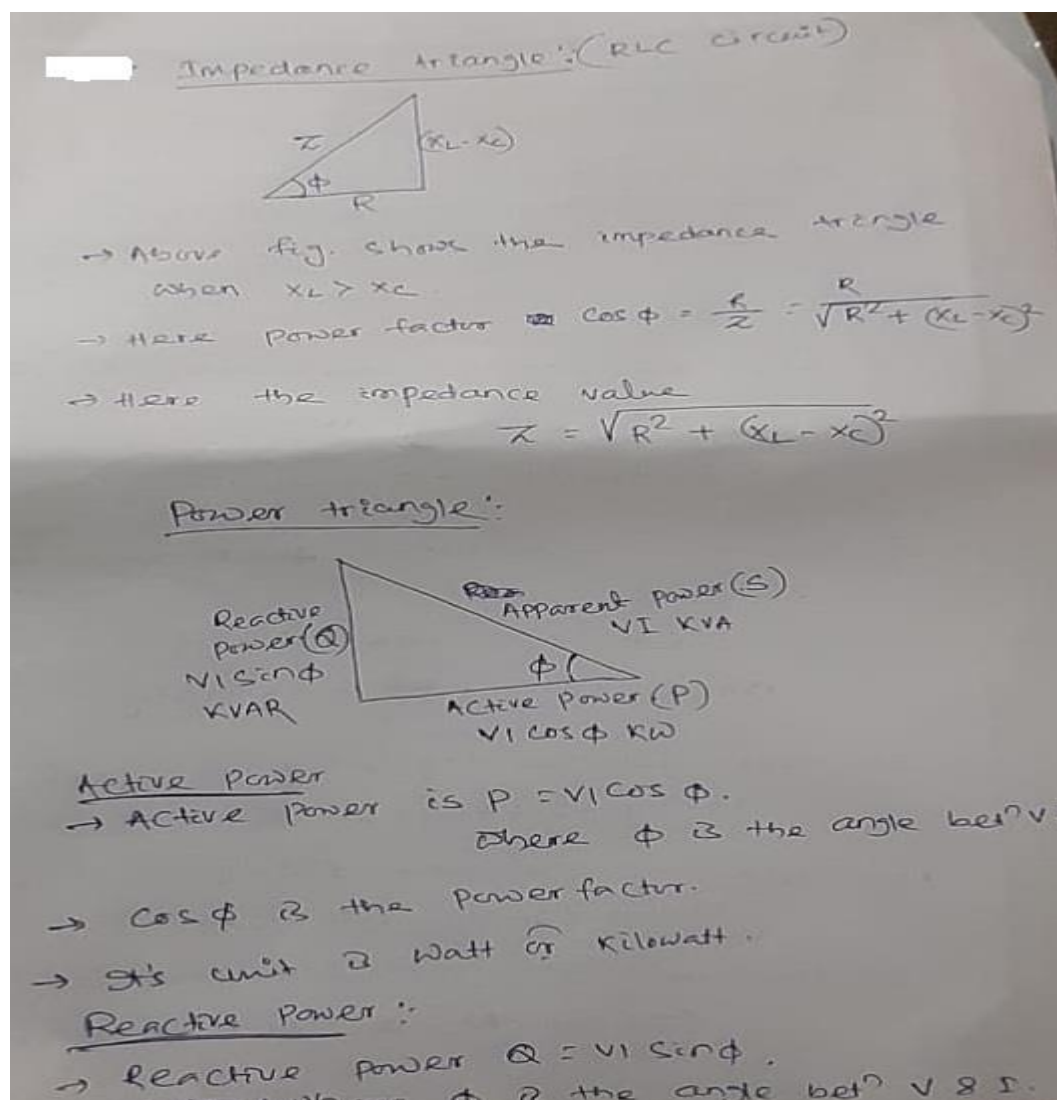 Impedance triangle :- (RLC circuit)
Z
(XL - XC)
φ
R
→ Above fig. shows the impedance triangle
when XL > XC
→ Here power factor cos φ = R/Z = R/√(R² + (XL - XC)²)
→ Here the impedance value
Z = √(R² + (XL - XC)²)
Power triangle :-
Reactive
power (Q)
VI sinφ
KVAR
Apparent power (S)
VI KVA
φ
Active Power (P)
VI cos φ KW
Active Power
→ Active Power is P = VI cos φ.
where φ is the angle betⁿ V
→ cos φ is the power factor.
→ It's unit is watt or Kilowatt.
Reactive Power :-
→ Reactive power Q = VI sinφ.
φ is the angle betⁿ V & I.